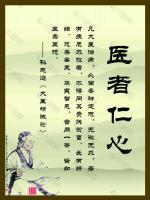 医者仁心
凡大医治病，必当安神定志，无欲无求，若
有疾厄来求救者，不得问其贵贱贫富，长幼妍
媸，怨亲善友，华夷愚智，普同一等，皆如
至亲之想。
——孙思邈《大医精诚论》